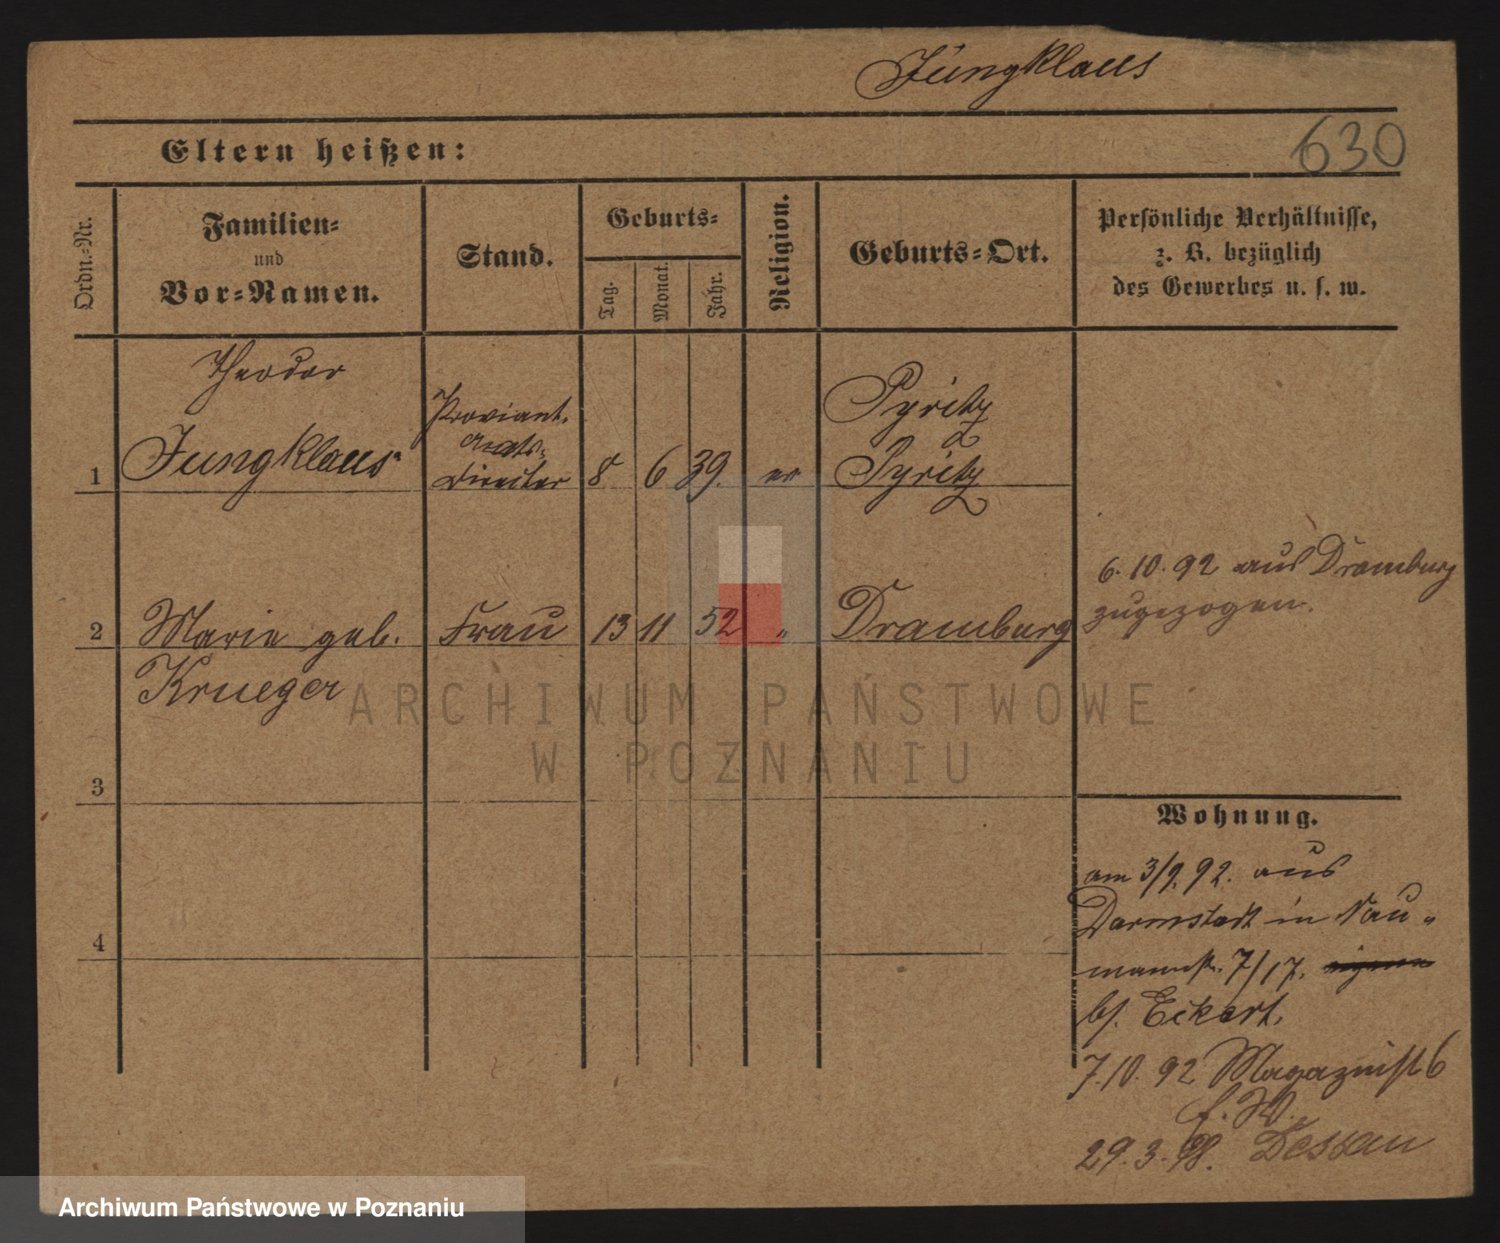 Jungklaus
Eltern heißen:
630
Ordn.-Nr.
Familien-
und
Vor-Namen.
Stand.
Geburts-
Tag.
Monat.
Jahr.
Religion.
Geburts-Ort.
Persönliche Verhältnisse,
z. B. bezüglich
des Gewerbes u. s. w.
Theodor
1 Jungklaus
Proviant.
Amts-
Director
8 6 39. ev
Pyritz
Pyritz
6.10.92 aus Dramburg
zugezogen.
2 Marie geb. Frau 13 11 52 " Dramburg
Krueger
3
4
Wohnung.
am 3/9.92. aus
Darmstadt in Nau-
mannstr. 7/17.
bs. Eckert.
7.10.92 Magazinst 6
f. W.
29.3.98. Dessau
ARCHIWUM PAŃSTWOWE
W POZNANIU
Archiwum Państwowe w Poznaniu